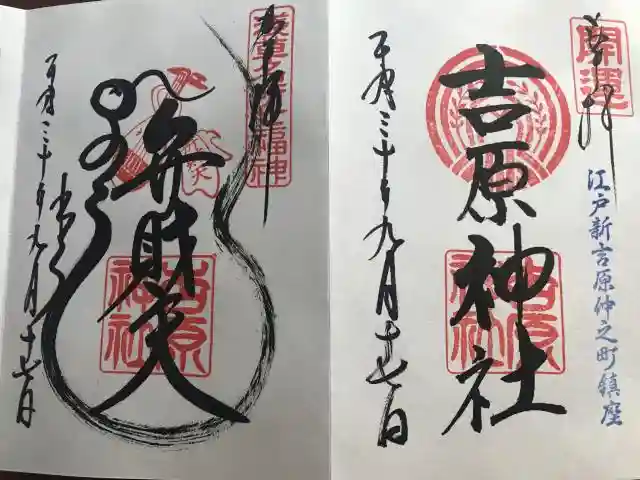 奉拝
開運
江戸新吉原仲之町鎮座
吉原神社
吉原神社
平成三十年九月十七日
奉拝
浅草名所七福神
弁財天
吉原神社
平成三十年九月十七日